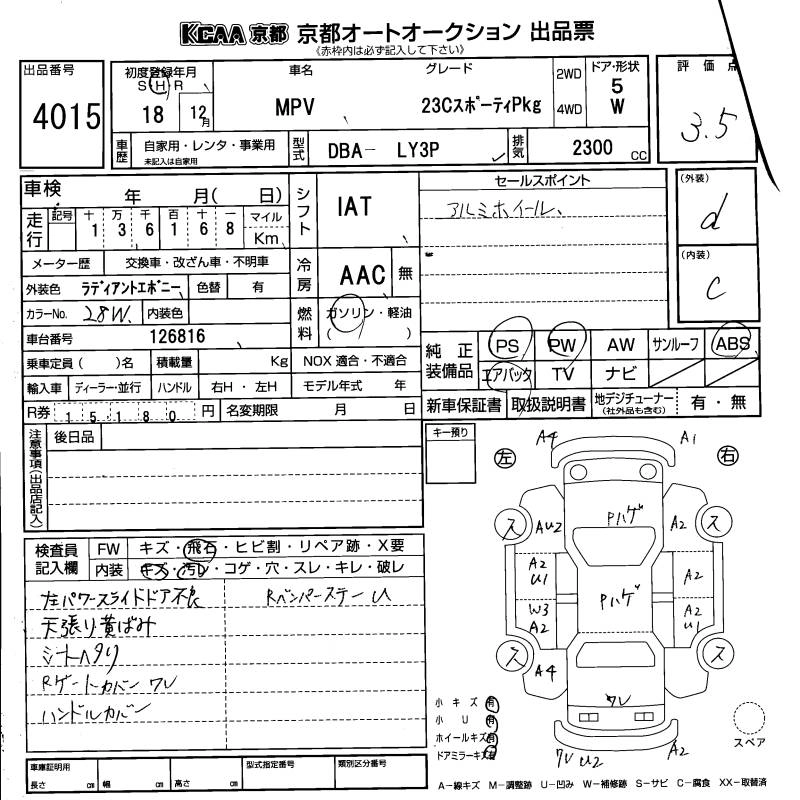 KCAA 京都 京都オートオークション 出品票
《赤枠内は必ず記入して下さい》
出品番号
4015
初度登録年月
S H R
18 12月
車名
MPV
グレード
23Cスポーティpkg
2WD
4WD
ドア・形状
5
W
評価点
3.5
車歴
自家用・レンタ・事業用
未記入は自家用
型式
DBA- LY3P
排気
2300 CC
車検 年 月( 日)
走行
記号 十 万 千 百 十 一
1 3 6 1 6 8
マイル
Km
シフト
IAT
セールスポイント
アルミホイール、
(外装)
d
(内装)
c
メーター歴 交換車・改ざん車・不明車
冷房
AAC 無
外装色 ラディアントエボニー 色替 有
カラーNo. 28W 内装色
燃料
ガソリン・軽油
( )
車台番号 126816
純正装備品
PS PW AW サンルーフ ABS
エアバッグ TV ナビ
乗車定員 ( )名 積載量 Kg NOX 適合・不適合
輸入車 ディーラー・並行 ハンドル 右H・左H モデル年式 年
新車保証書 取扱説明書 地デジチューナー(社外品も含む) 有・無
R券 15180 円 名変期限 月 日
注意事項(出品店記入)
後日品
キー預り
左 右
A4 A1
ス AU2 Pハゲ A2 ス
A2 U1 A2
Pハゲ
W3 A2 A2 U1
ス A4 ス
ワレ
ワレ U2 A2
スペア
検査員記入欄
FW キズ・飛石・ヒビ割・リペア跡・X要
内装 キズ・汚レ・コゲ・穴・スレ・キレ・破レ
左パワースライドドア不良 Rバンパーステー U
天張り黄ばみ
シートヘタリ
Rゲートカバー ワレ
ハンドルカバー
小キズ 有
小U 有
ホイールキズ 有
ドアミラーキズ 有
車庫証明用
長さ cm 幅 cm 高さ cm
型式指定番号
類別区分番号
A−線キズ M−調整跡 U−凹み W−補修跡 S−サビ C−腐食 XX−取替済